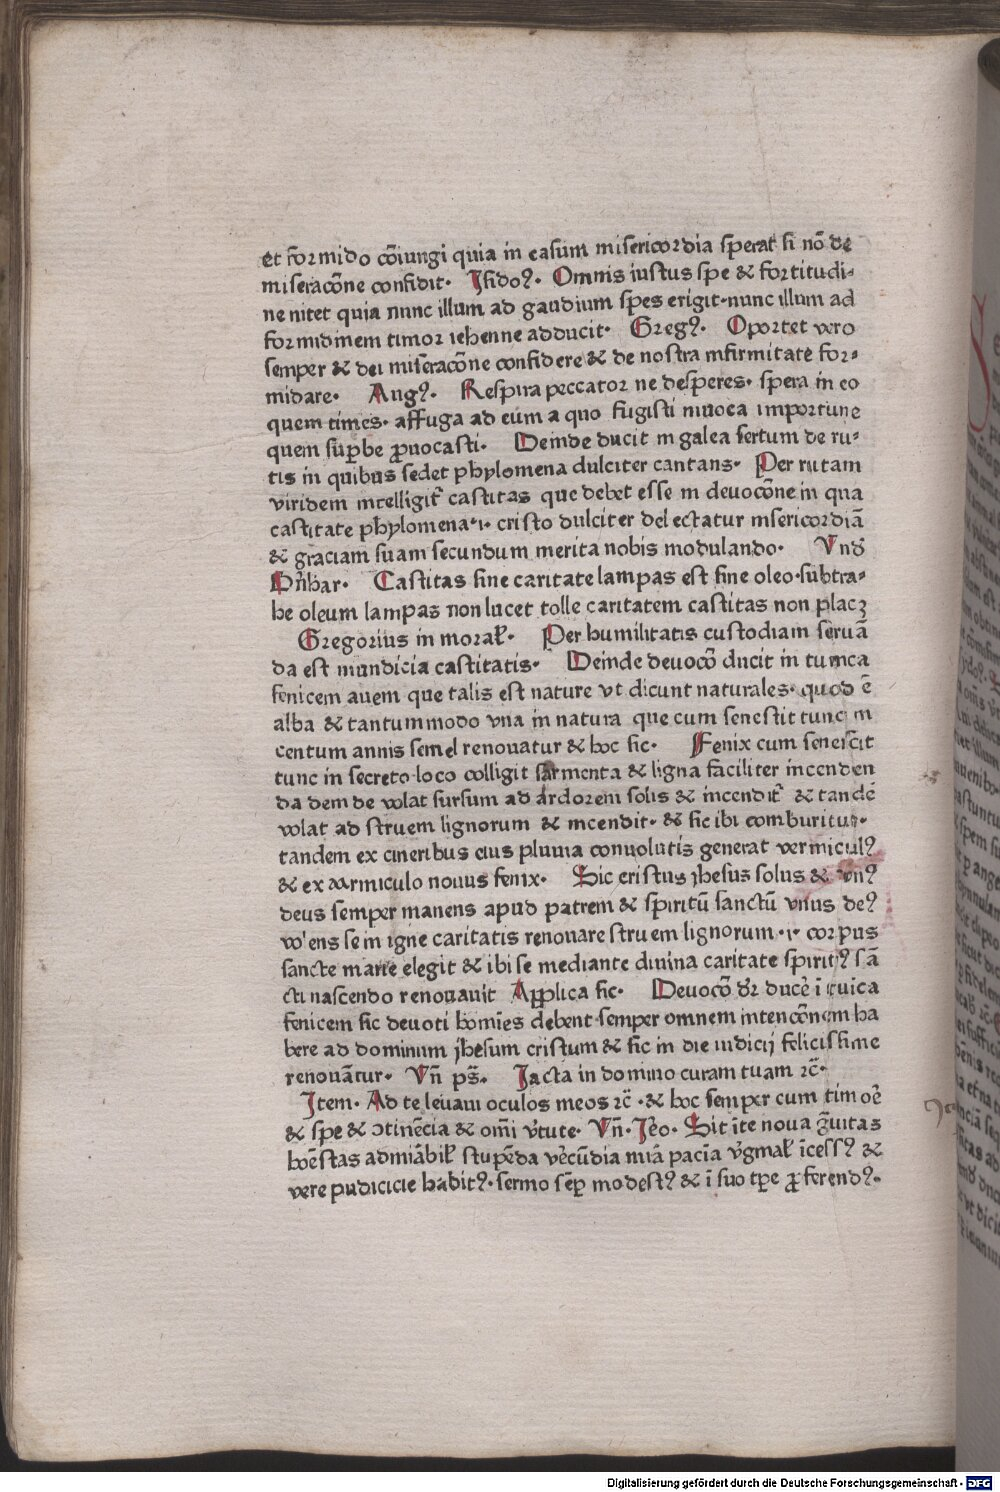 et formido cōiungi quia in easum misericordia sperat̄ si nō de
miseracōne confidit· Isidoꝰ· Omnis iustus spe & fortitudi-
ne nitet quia nunc illum ad gaudium spes erigit·nunc illum ad
formidinem timor iehenne adducit· Gregꝰ· Oportet vero
semper & dei miseracōne confidere & de nostra infirmitate for-
midare· Augꝰ· Respira peccator ne desperes· spera in eo
quem times· affuga ad eum a quo fugisti inuoca importune
quem suꝑbe ꝓuocasti· Deinde ducit in galea sertum de ru-
tis in quibus sedet phylomena dulciter cantans· Per rutam
viridem intelligit̄ castitas que debet esse in deuocōne in qua
castitate phylomena·i· cristo dulciter delectatur misericordiā
& graciam suam secundum merita nobis modulando· Vnđ
Bn̄har· Castitas sine caritate lampas est sine oleo·subtra-
he oleum lampas non lucet tolle caritatem castitas non placꝫ
Gregorius in moraƚ· Per humilitatis custodiam seruā
da est mundicia castitatis· Deinde deuocō ducit in tunica
fenicem auem que talis est nature vt dicunt naturales· quod ē
alba & tantummodo vna in natura que cum senestit tunc in
centum annis semel renouatur & hoc sic· Fenix cum senescit
tunc in secreto loco colligit sarmenta & ligna faciliter incenden
da deinde volat sursum ad ardorem solis & incendit̄ & tandē
volat ad struem lignorum & incendit· & sic ibi comburitur·
tandem ex cineribus eius pluuia conuolutis generat vermiculꝰ
& ex vermiculo nouus fenix· Sic cristus jhesus solus & vnꝰ
deus semper manens apud patrem & spiritū sanctū vnus deꝰ
volens se in igne caritatis renouare struem lignorum ·i· corpus
sancte marie elegit & ibi se mediante diuina caritate spiritꝰ sā
cti nascendo renouauit Applica sic· Deuocō đr ducē ī tuica
fenicem sic deuoti homīes debent semper omnem intencōnem ha
bere ad dominum jhesum cristum & sic in die iudicij felicissime
renouātur· Vn̄ ps̄· Iacta in domino curam tuam ⁊c̄·
Item· Ad te leuaui oculos meos ⁊c̄ ·& hoc semper cum timoē
& spe & ↄtinēcia & om̄i v̄tute· Vn̄· Jēo· Sit īte noua g̊uitas
hoēstas admiābiƚ stupēda vēcūdia mīa pacīa v̄gīnaƚ īcessꝰ &
vere pudicicie habitꝰ· sermo sēꝑ modestꝰ & ī suo tꝑe ꝓferendꝰ·
Digitalisierung gefördert durch die Deutsche Forschungsgemeinschaft - DFG